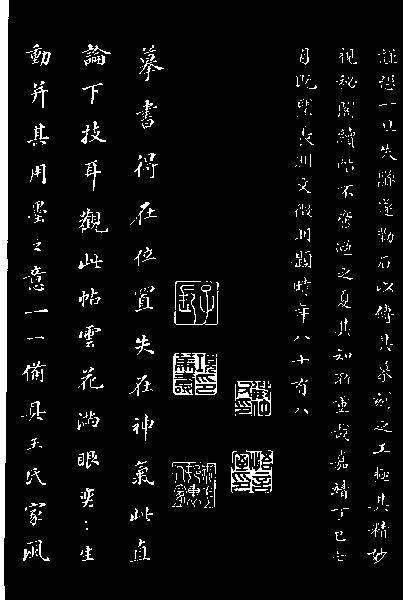 恐一旦失墜遂勒石以傳其摹刻之工極其精妙
視秘閣續帖不啻過之夏其知所重哉嘉靖丁巳七
月既望長洲文徵明題時年八十有八
摹書得在位置失在神氣此直
論下技耳觀此帖雲花滿眼奕〻生
動并其用墨之意一一備具王氏家風